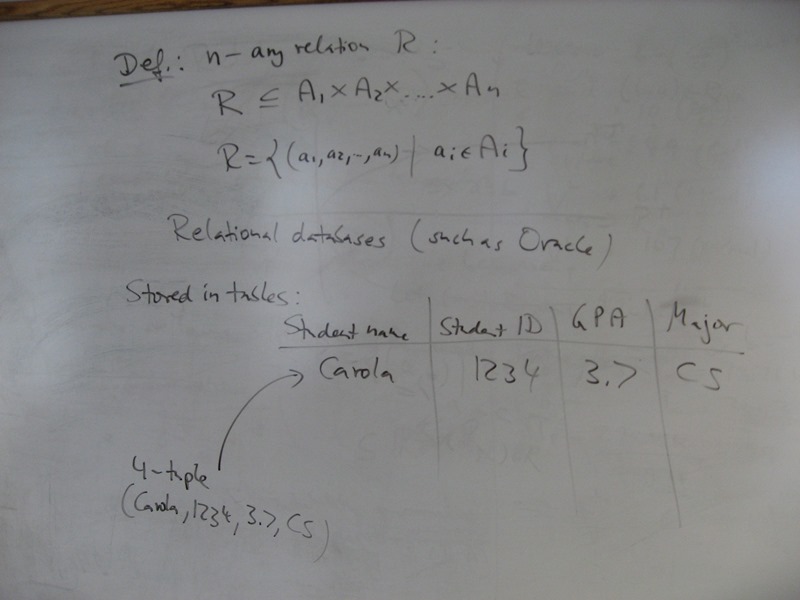 Def.: n-ary relation R:
R ⊆ A₁ × A₂ × .... × Aₙ
R = {(a₁, a₂, .., aₙ) | aᵢ ∈ Aᵢ}
Relational databases (such as Oracle)
Stored in tables:
Student name | Student ID | GPA | Major
Carola | 1234 | 3.7 | CS
4-tuple
(Carola, 1234, 3.7, CS)